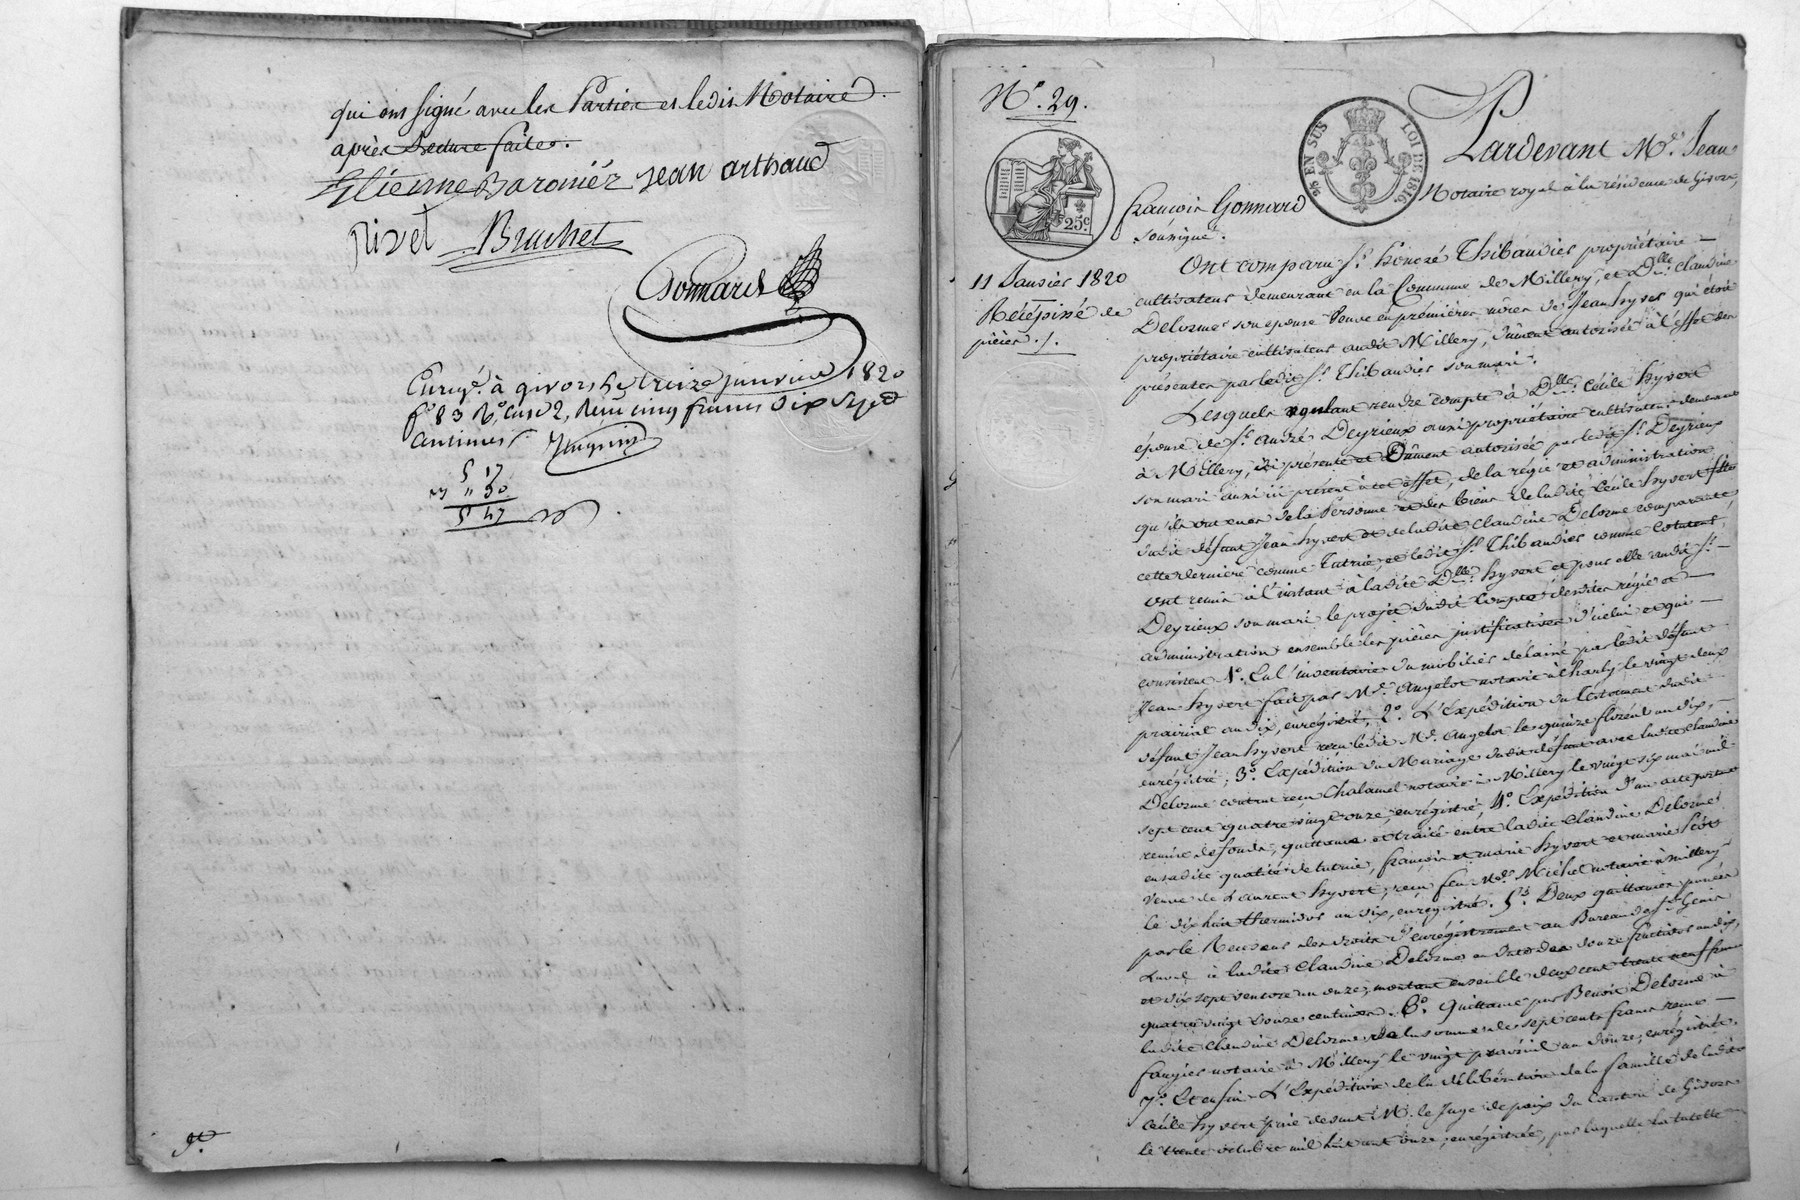 qui ont signé avec les Parties et ledit Notaire
après Lecture faite.
Etienne Baronier Jean arthaud
Rivet Bruchet
Gonnard
Enregé. à givors le treize janvier 1820
fo 83 Ro Case 2, Reçu cinq francs dix sept
Centimes
5 17
" 30
5 47
9.
No. 29.
EN SUS LOI DE 1816.
25c
Pardevant Me. Jean
françois Gonnard Notaire royal à la résidence de Givors,
soussigné.
11 Janvier 1820
Récépissé de
pièces ./.
Ont comparu Sr. honoré Thibaudier propriétaire
cultivateur demeurant en la Commune de Millery, et Dlle. Claudine
Delorme son épouse Veuve en premières nôces de Jean hyver qui étoit
propriétaire cultivateur audit Millery, dûment autorisée à l'effet des
présentes par ledit Sr. Thibaudier son mari.
Lesquels voulant rendre compte à Dlle. Cécile hyvert
épouse de Sr. andré Deyrieux aussi propriétaire cultivateur demeurant
à Millery, ici présente et Dûment autorisée par ledit Sr. Deyrieux
son mari aussi ici présent à cet effet, de la régie et administration
qu'ils ont eues de la Personne et des biens de ladite Cécile hyvert fille
dudit défunt Jean hyvert et de ladite Claudine Delorme comparante
cette dernière comme Tutrice et ledit Sr. Thibaudier comme Cotuteur,
ont remis à l'instant à ladite Dlle. hyvert et pour elle audit Sr.
Deyrieux son mari le projet dudit Compte desdites régie et
administration ensemble les pièces justificatives d'icelui et qui
consistent 1o. En l'inventaire du mobilier délaissé par ledit défunt
Jean hyvert fait par Me. angelot notaire à Charly le vingt deux
prairial an dix, enrégistré, 2o. L'Expédition du Testament dudit
défunt Jean hyvert reçu ledit Me. angelot le quinze floréal an dix,
enrégistré; 3o. Expédition du Mariage dudit défunt avec ladite Claudine
Delorme contrat reçu Chalamel notaire à Millery le vingt six mai mil
sept cent quatre vingt onze, enrégistré, 4o. Expédition d'un acte portant
remise de fonds, quittance et traité entre ladite Claudine Delorme
en sadite qualité de tutrice, françois et marie hyvert et marie
veuve de Laurent hyvert, reçu feu Me. Michel notaire à Millery
le dix huit thermidor an dix, enrégistré. 5o. Deux quittances passées
par le Receveur des droits d'enrégistrement au Bureau de St. Genis
Laval à ladite Claudine Delorme en date des douze fructidor an dix,
et dix sept ventose an onze, montant ensemble deux cent trente neuf francs
quatre vingt douze centimes. 6o. Quittance par Benoit Delorme à
ladite Claudine Delorme de la somme de sept cents francs reçue
notaire à Millery le vingt prairial an douze, enrégistrée.
7o. Et enfin L'Expédition de la délibération de la famille de ladite
Cécile hyvert prise devant M. le Juge de paix du Canton de Givors
le trente octobre mil huit cent onze, enrégistrée, par laquelle la tutelle